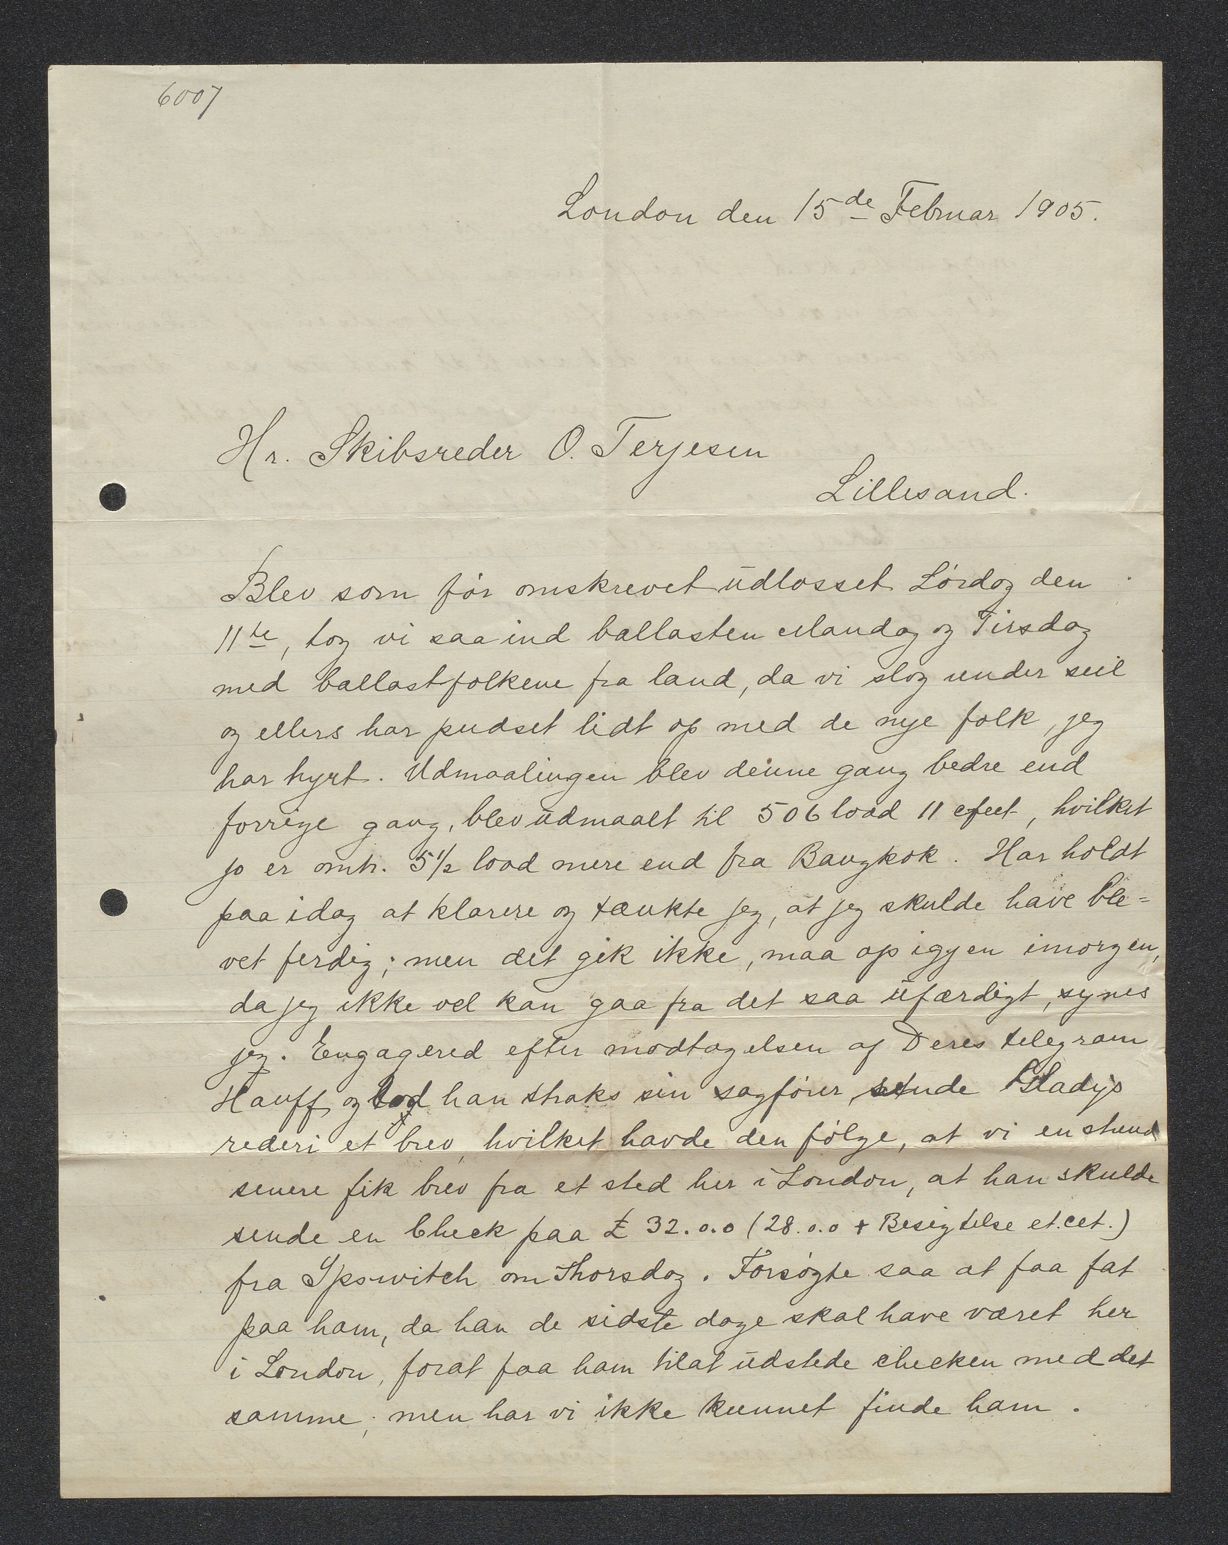 6007
London den 15de Februar 1905.
Hr. Skibsreder O. Terjesen
Lillesand.
Blev som før omskrevet udlosset Lørdag den
11te, tog vi saa ind ballasten Mandag og Tirsdag
med ballastfolkene fra land, da vi slog under seil
og ellers har pudset lidt op med de nye folk, jeg
har hyrt. Udmaalingen blev denne gang bedre end
forrige gang, blev udmaalt til 506 load 11 cfeet, hvilket
jo er omtr. 5 1/2 load mere end fra Bangkok. Har holdt
paa idag at klarere og tænkte jeg, at jeg skulde have ble=
vet ferdig; men det gik ikke, maa op igjen imorgen,
da jeg ikke vel kan gaa fra det saa ufærdigt, synes
jeg. Engagered efter modtagelsen af Deres telegram
Hauff og lod han straks sin sagfører, sende Gladys
rederi et brev, hvilket havde den følge, at vi en stund
senere fik brev fra et sted her i London, at han skulde
sende en Check paa £ 32.0.0 (28.0.0 + Besigtelse et.cet.)
fra Ipswitch om Thorsdag. Forsøgte saa at faa fat
paa ham, da han de sidste dage skal have været her
i London, forat faa ham til at udstede checken med det
samme; men har vi ikke kunnet finde ham.